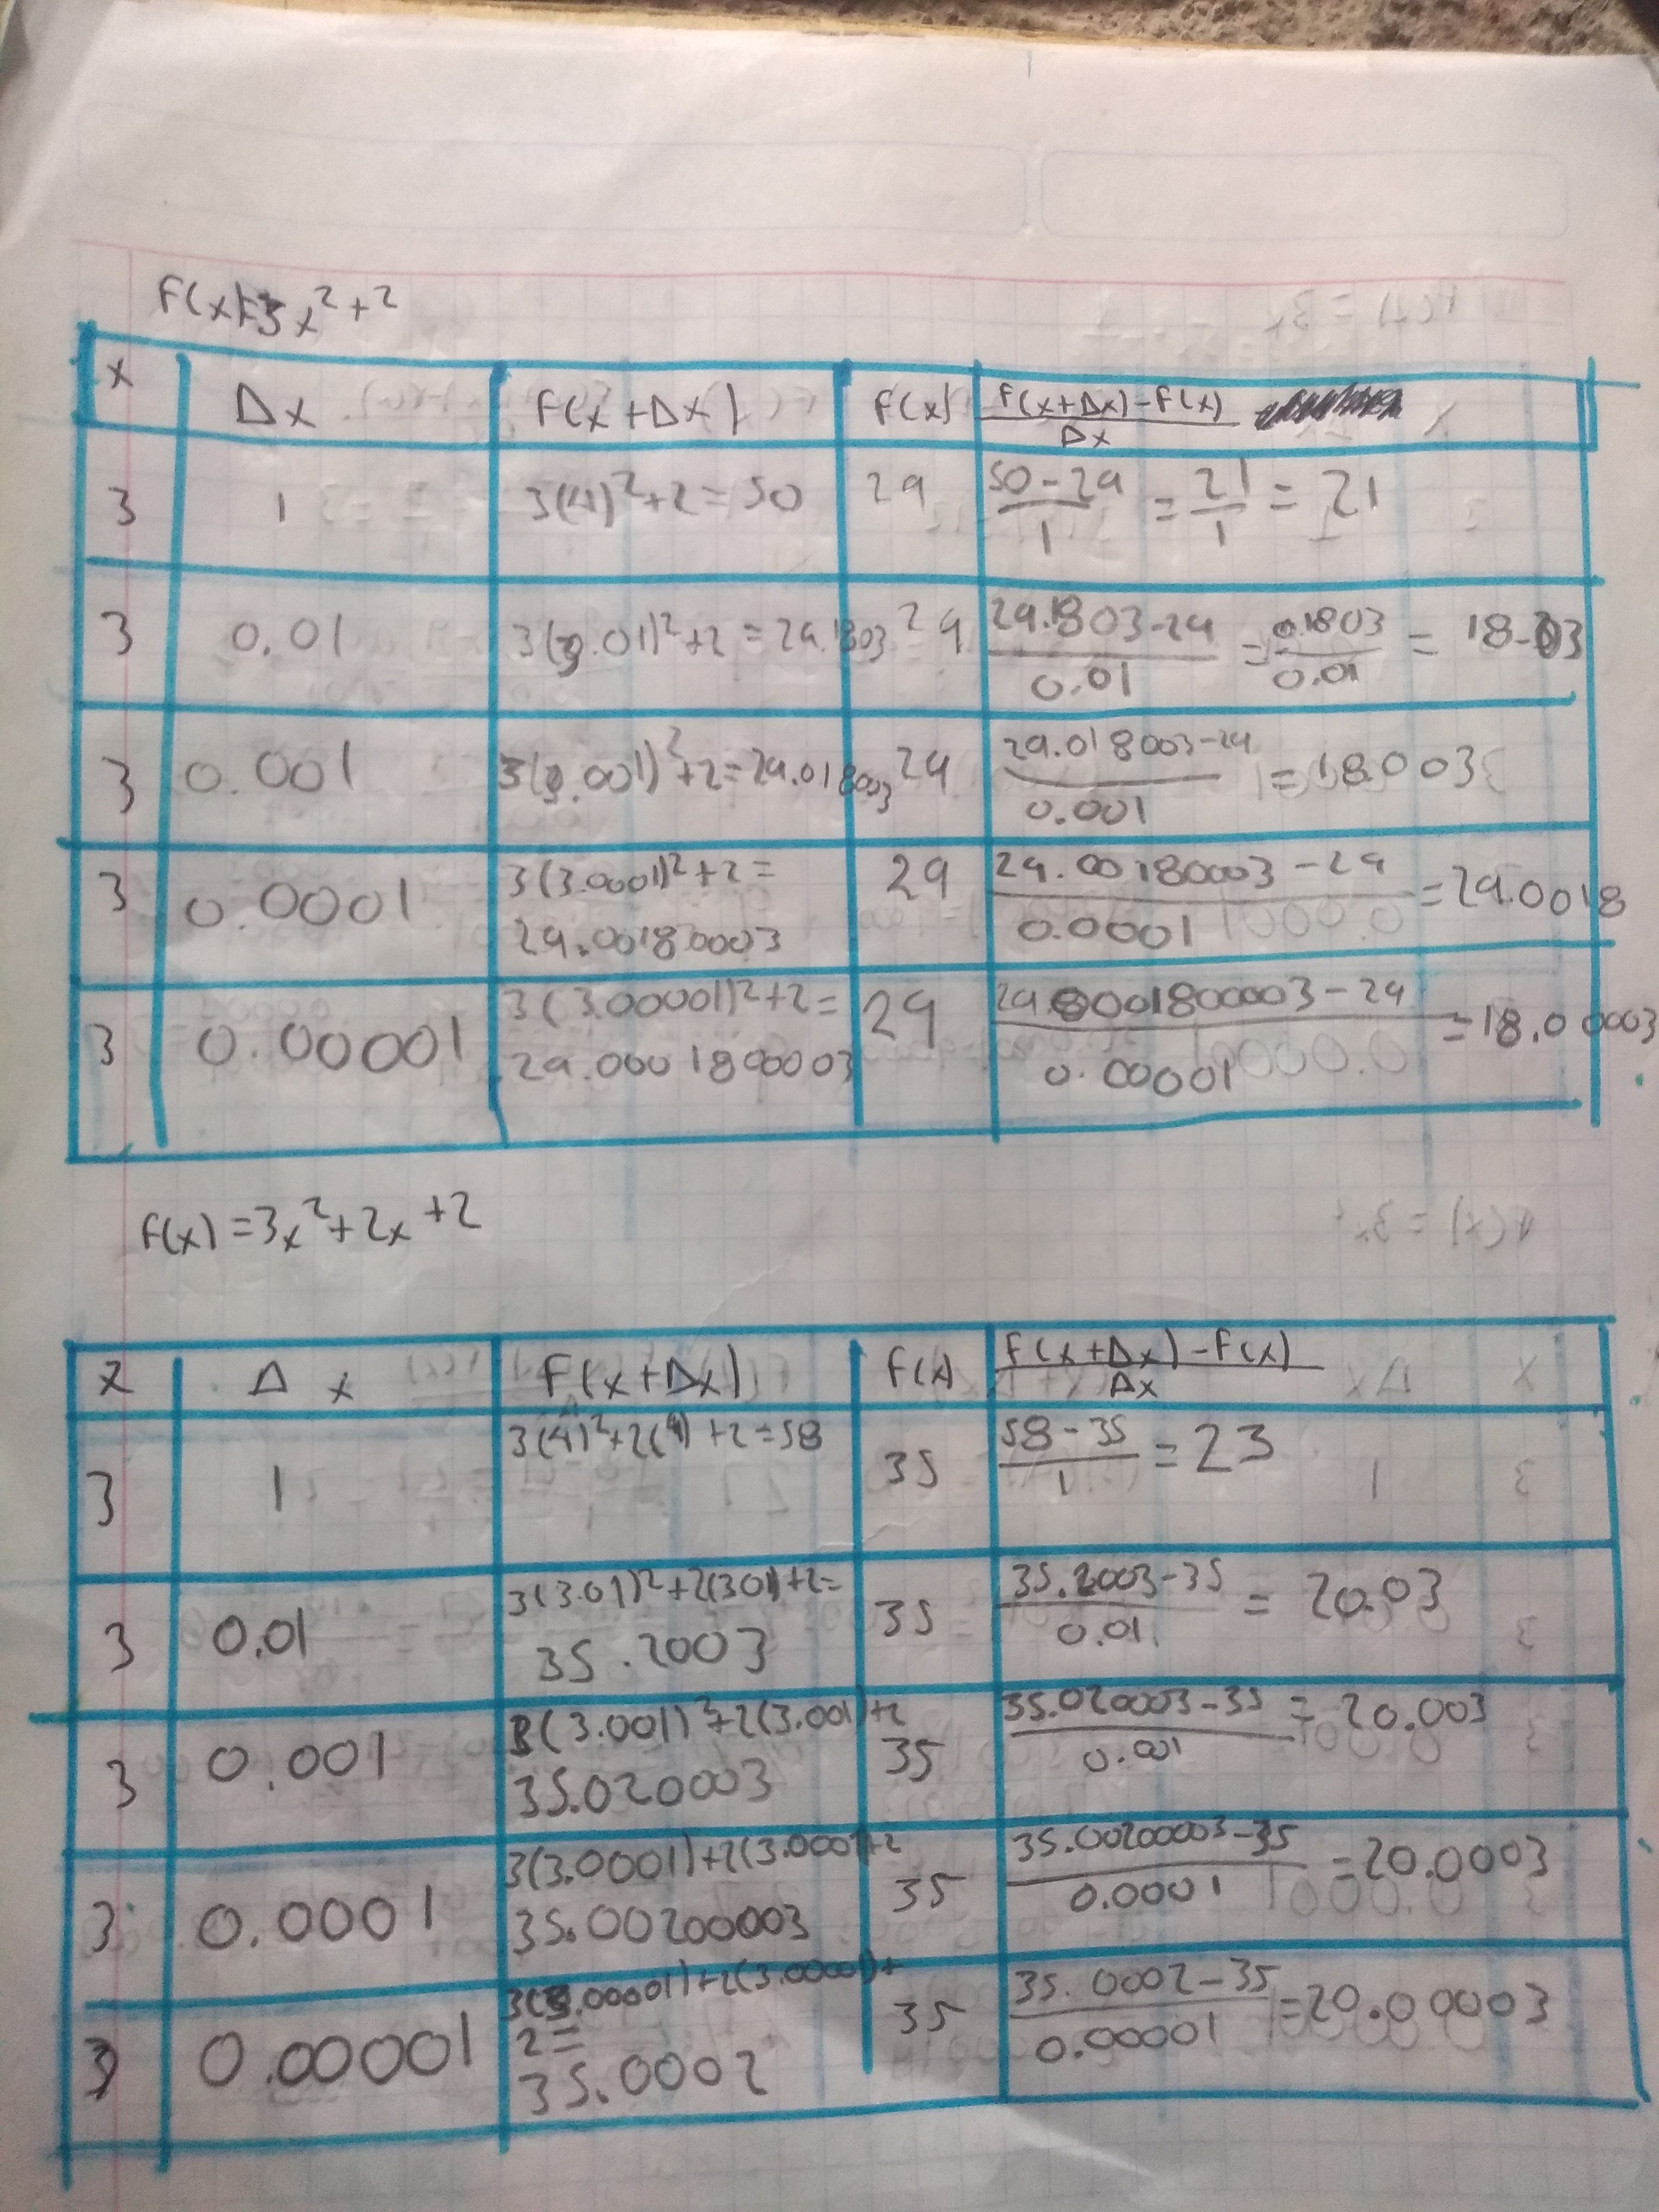 F(x)=3x²+2
x Δx F(x+Δx) F(x) F(x+Δx)-F(x)/Δx
3 1 3(4)²+2=50 29 50-29/1 = 21/1 = 21
3 0.01 3(3.01)²+2=29.1803 29 29.1803-29/0.01 = 0.1803/0.01 = 18.03
3 0.001 3(3.001)²+2=29.018003 29 29.018003-29/0.001 = 18.003
3 0.0001 3(3.0001)²+2= 29 29.00180003-29/0.0001 = 29.0018
29.00180003
3 0.00001 3(3.00001)²+2= 29 29.0001800003-29/0.00001 = 18.00003
29.0001800003
F(x)=3x²+2x+2
x Δx F(x+Δx) F(x) F(x+Δx)-F(x)/Δx
3 1 3(4)²+2(4)+2=58 35 58-35/1 = 23
3 0.01 3(3.01)²+2(3.01)+2= 35 35.2003-35/0.01 = 20.03
35.2003
3 0.001 3(3.001)²+2(3.001)+2 35 35.020003-35/0.001 = 20.003
35.020003
3 0.0001 3(3.0001)+2(3.0001)+2 35 35.00200003-35/0.0001 = 20.0003
35.00200003
3 0.00001 3(3.00001)+2(3.00001)+ 35 35.0002-35/0.00001 = 20.00003
2=
35.0002